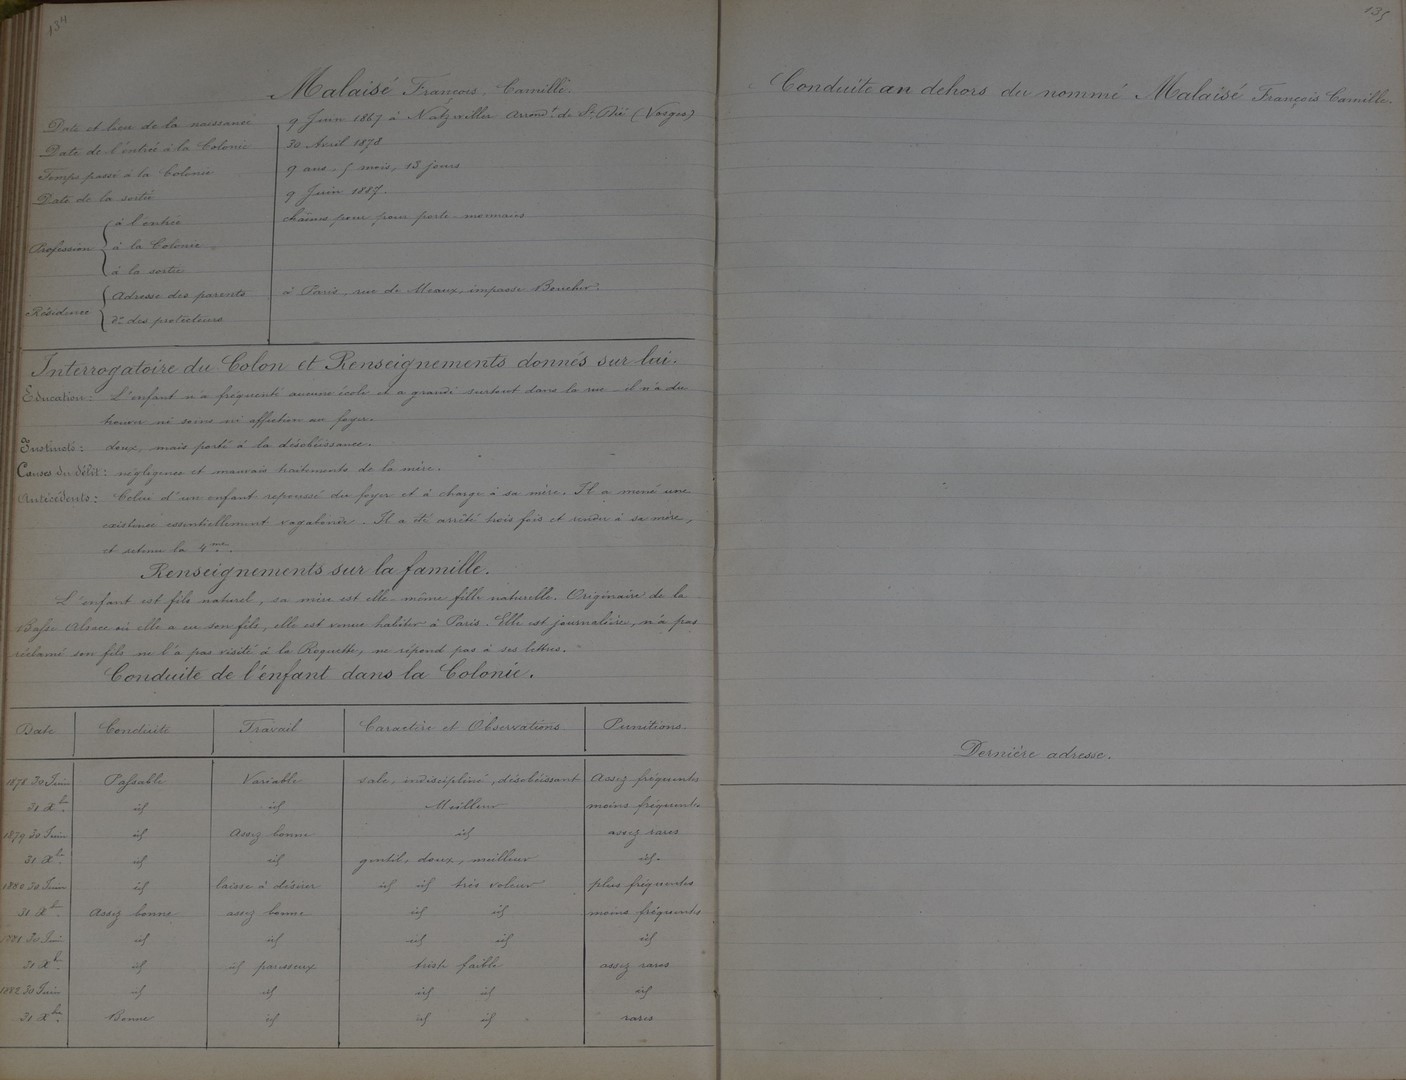 134
Malaisé François, Camille.
Date et lieu de la naissance 9 Juin 1867 à Natzwiller Arrond.t de St Dié (Vosges)
Date de l'entrée à la Colonie 30 Avril 1878
Temps passé à la Colonie 9 ans, 5 mois, 13 jours
Date de la sortie 9 Juin 1887.
Profession
à l'entrée chaînes pour pour porte-monnaies
à la Colonie
à la sortie
Résidence
Adresse des parents à Paris, rue de Meaux, impasse Boucher.
d.o des protecteurs
Interrogatoire du Colon et Renseignements donnés sur lui.
Education: L'enfant n'a fréquenté aucune école et a grandi surtout dans la rue il n'a du
trouver ni soins ni affection au foyer.
Instincts: doux, mais porté à la désobéissance.
Causes du délit: négligence et mauvais traitements de la mère.
Antécédents: Celui d'un enfant repoussé du foyer et à charge à sa mère. Il a mené une
existence essentiellement vagabonde. Il a été arrêté trois fois et rendu à sa mère,
et retenu la 4me.
Renseignements sur la famille.
L'enfant est fils naturel, sa mère est elle-même fille naturelle. Originaire de la
Basse Alsace où elle a eu son fils, elle est venue habiter à Paris. Elle est journalière, n'a pas
réclamé son fils ne l'a pas visité à la Roquette, ne répond pas à ses lettres.
Conduite de l'enfant dans la Colonie.
Date Conduite Travail Caractère et Observations Punitions.
1878 30 Juin Passable Variable sale, indiscipliné, désobéissant Assez fréquentes
31 Xbre id id Meilleur moins fréquentes
1879 30 Juin id Assez bonne id assez rares
31 Xbre id id gentil, doux, meilleur id.
1880 30 Juin id laisse à désirer id id très voleur plus fréquentes
31 Xbre Assez bonne assez bonne id id moins fréquentes
1881 30 Juin id id id id id
31 Xbre id id paresseux triste faible assez rares
1882 30 Juin id id id id id
31 Xbre Bonne id id id rares
135
Conduite au dehors du nommé Malaisé François Camille.
Dernière adresse.